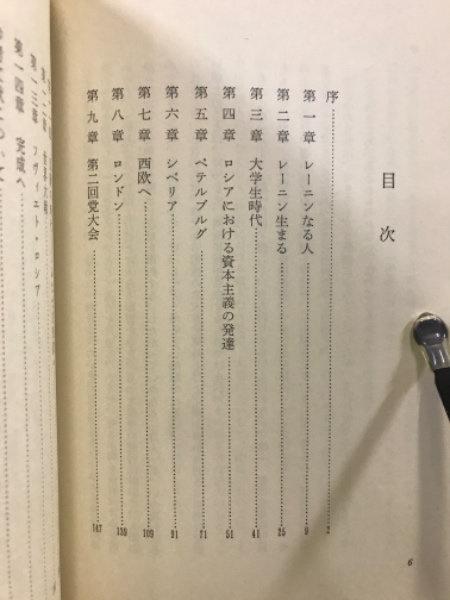 目次
序 2
第一章 レーニンなる人 9
第二章 レーニン生まる 25
第三章 大学生時代 41
第四章 ロシアにおける資本主義の発達 51
第五章 ペテルブルグ 71
第六章 シベリア 91
第七章 西欧へ 109
第八章 ロンドン 139
第九章 第二回党大会 147
第一三章 ソヴィエト・ロシア
第一四章 完成へ
6